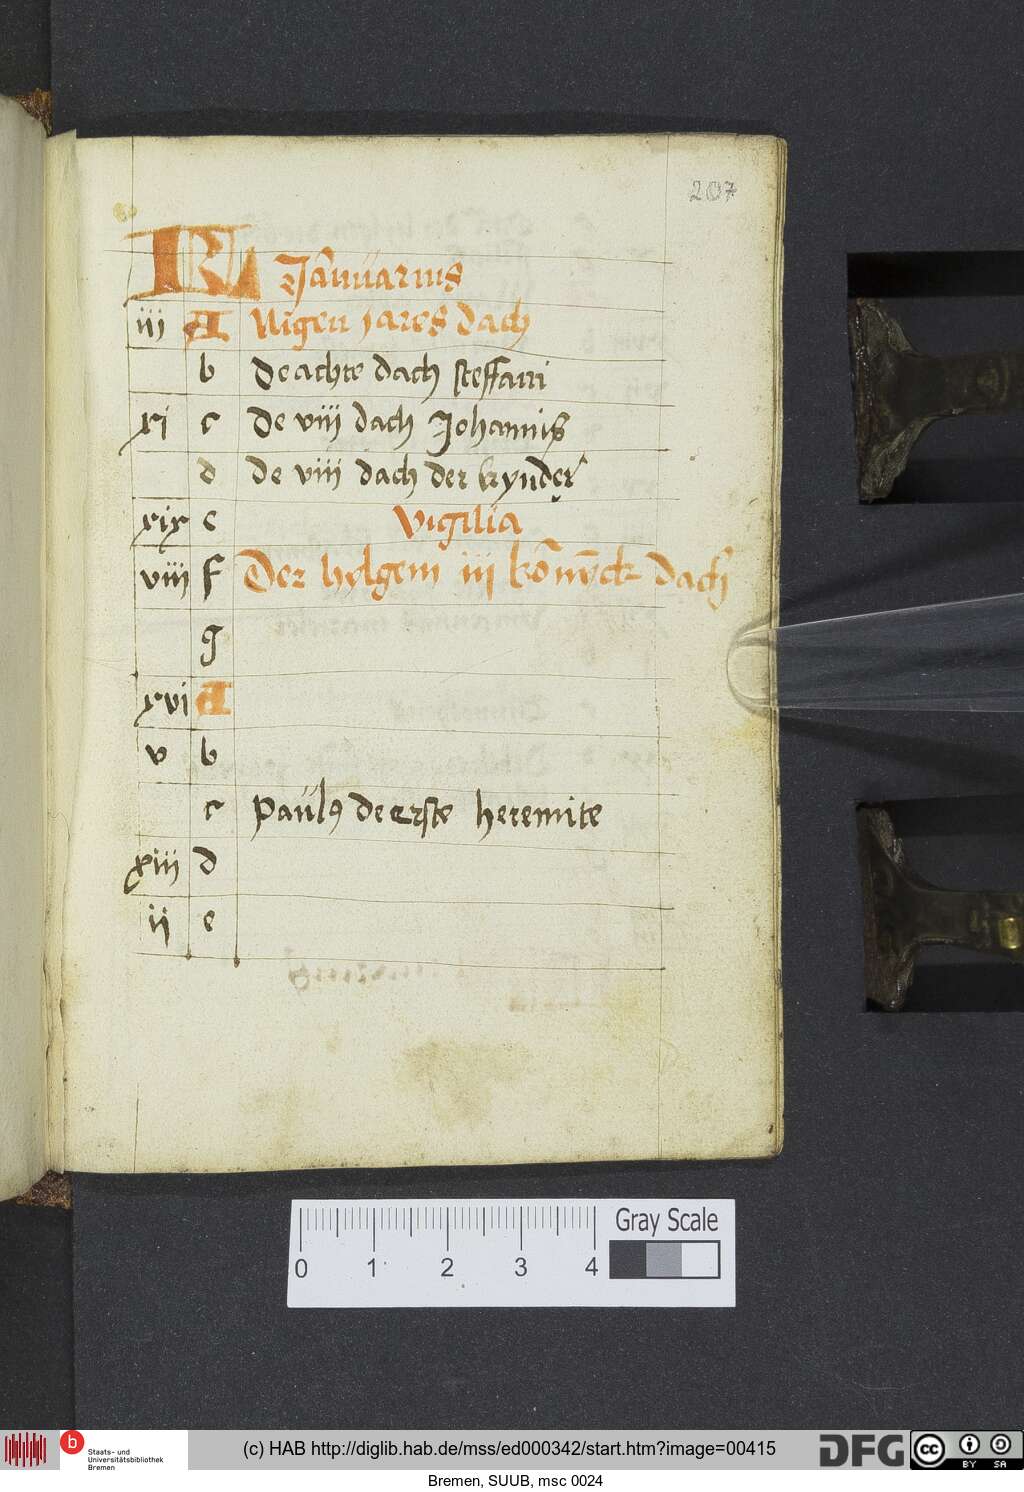 207
KL Januarius
iii A Nigen jares dach
b De achte dach steffani
xi c De viii dach Johannis
d De viii dach der kynder
xix e Vigilia
viii f Der hylgenn iii konnyck dach
g
xvi A
v b
c Paulus de erste heremite
xiii d
ii e
0 1 2 3 4 Gray Scale
b Staats- und
Universitätsbibliothek
Bremen
(c) HAB http://diglib.hab.de/mss/ed000342/start.htm?image=00415
DFG cc BY SA
Bremen, SUUB, msc 0024